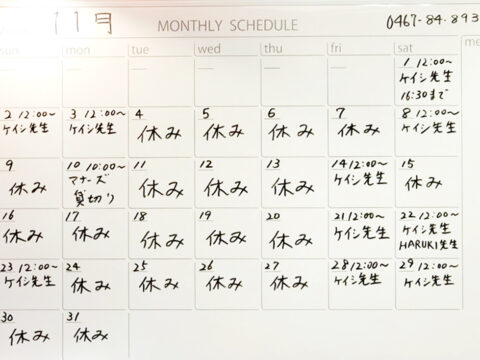 11月 MONTHLY SCHEDULE 0467-84-893
sun mon tue wed thu fri sat me
1 12:00~
ケイシ先生
16:30まで
2 12:00~ 3 12:00~ 4 5 6 7 8 12:00~
ケイシ先生 ケイシ先生 休み 休み 休み 休み ケイシ先生
9 10 10:00~ 11 12 13 14 12:00~ 15
休み マナーズ 休み 休み 休み ケイシ先生 休み
貸切り
16 17 18 19 20 21 12:00~ 22 12:00~
休み 休み 休み 休み 休み ケイシ先生 ケイシ先生
HARUKI先生
23 12:00~ 24 25 26 27 28 12:00~ 29 12:00~
ケイシ先生 休み 休み 休み 休み ケイシ先生 ケイシ先生
30 31
休み 休み